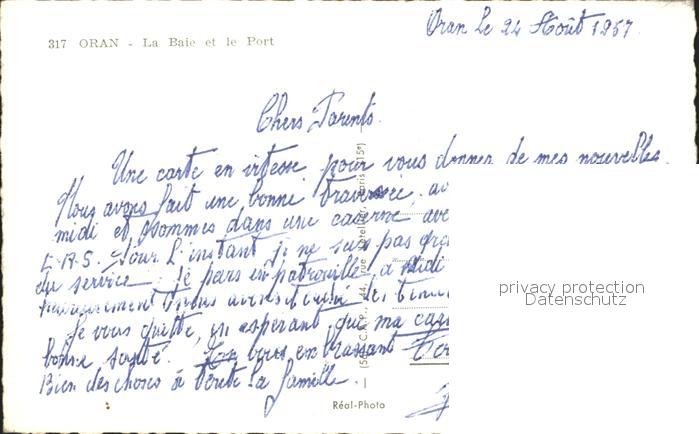 Oran le 24 Août 1957.
317 ORAN - La Baie et le Port
Chers Parents.
Une carte en vitesse pour vous donner de mes nouvelles.
Nous avons fait une bonne traversée,
midi et sommes dans une caserne
Pour L'instant je ne suis pas
du service. Je pars en patrouille, à
nous avons
Je vous quitte, en esperant que ma
bonne santé. vous embrassant
Bien des choses à toute la famille.
Réal-Photo
privacy protection
Datenschutz